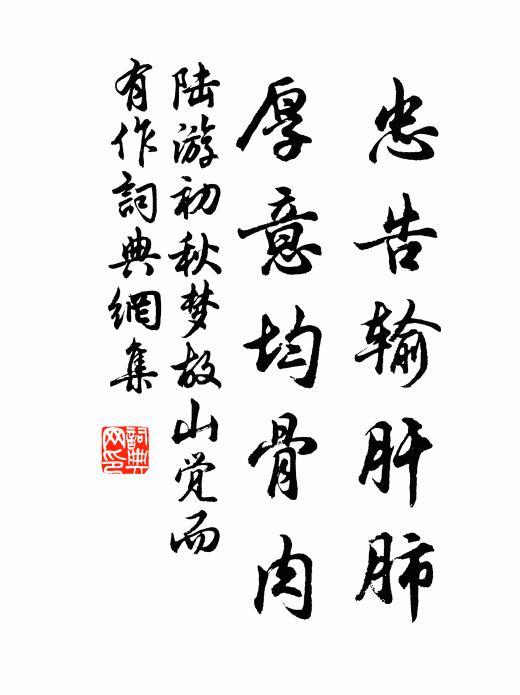 忠告输肝肺
厚意均骨肉
陆游初秋梦故山觉而
有作詞典網集
詞典网印